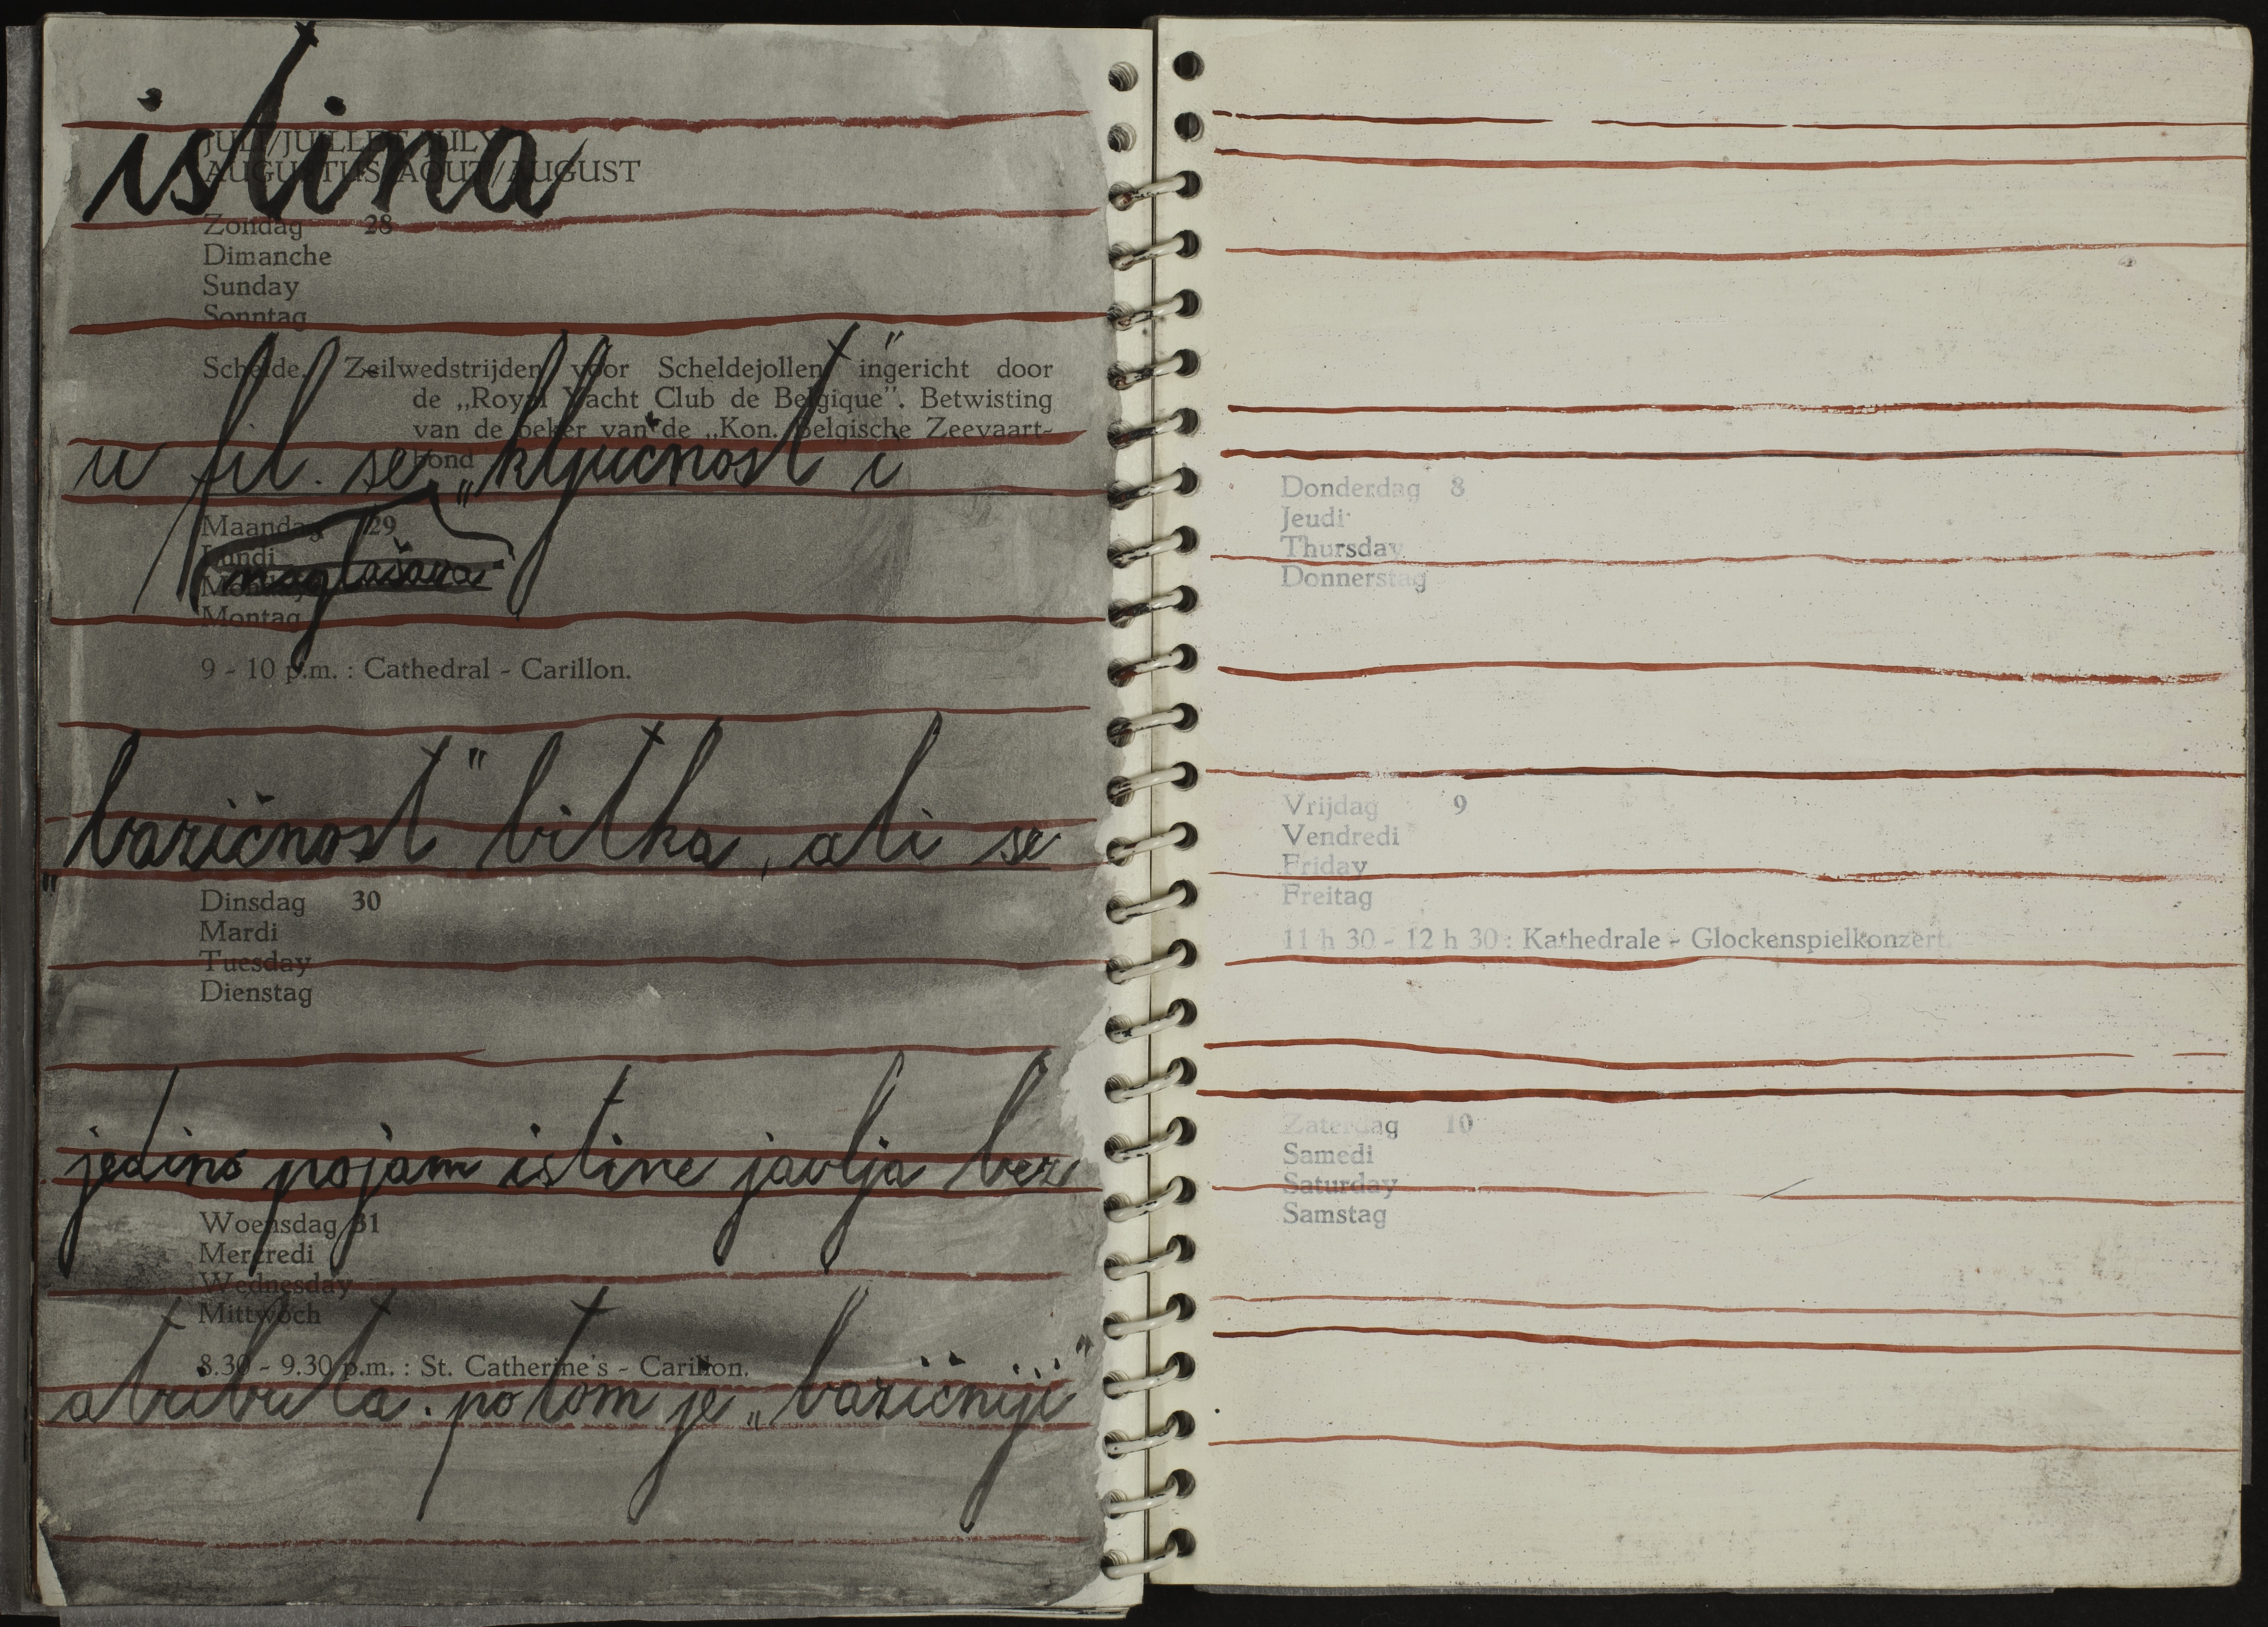 istina
JULI/JUILLET/JULY
AUGUSTUS/AOUT/AUGUST
Zondag 28
Dimanche
Sunday
Sonntag
Schelde. Zeilwedstrijden voor Scheldejollen ingericht door
de „Royal Yacht Club de Belgique”. Betwisting
van de beker van de „Kon. Belgische Zeevaart-
bond
u fil. se „ključnost" i
Maandag 29
Lundi
Monday
Montag
naglašava
9 - 10 p.m. : Cathedral - Carillon.
„bazičnost" bitka, ali se
Dinsdag 30
Mardi
Tuesday
Dienstag
jedino pojam istine javlja bez
Woensdag 31
Mercredi
Wednesday
Mittwoch
8.30 - 9.30 p.m. : St. Catherine's - Carillon.
atributa. potom je „bazičniji"
Donderdag 8
Jeudi
Thursday
Donnerstag
Vrijdag 9
Vendredi
Friday
Freitag
11 h 30 - 12 h 30 : Kathedrale - Glockenspielkonzert.
Zaterdag 10
Samedi
Saturday
Samstag